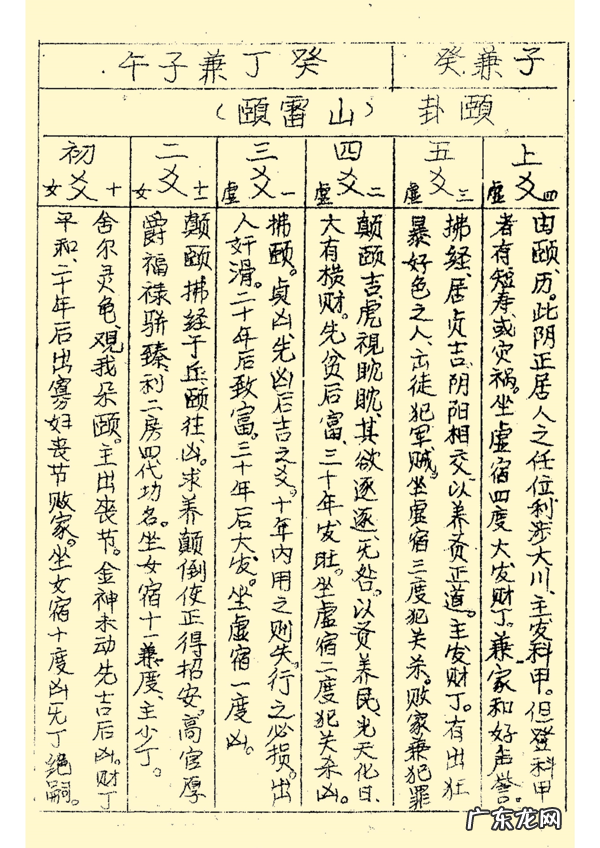 子兼癸
癸丁兼子午
颐卦 (山雷颐)
上爻 虚四
由颐、历。此阴正居人之任位,利涉大川、主发科甲。但登科甲
者有短寿、或灾祸。坐虚宿四度大发财丁。兼家和好声誉。
五爻 虚三
拂经、居贞吉、阴阳相交,以养贤正道。主发财丁。有出狂
暴好色之人、击徒犯军贼。坐虚宿三度犯关杀。败家兼犯罪
四爻 虚二
颠颐吉、虎视眈眈、其欲逐逐、无咎。以贤养民、光天化日、
大有横财。先贫后富、三十年发旺。坐虚宿二度犯关杀凶。
三爻 虚一
拂颐。贞凶、先凶后吉之爻。十年内用之则失。行之必损。出
人奸滑。二十年后致富。三十年后大发。坐虚宿一度凶。
二爻 女十一
颠颐拂经于丘颐往凶。求养颠倒使正得招安。高官厚
爵福禄骈臻利二房四代功名。坐女宿十一兼度、主少丁。
初爻 女十
舍尔灵龟、观我朵颐。主出丧节。金神未动先吉后凶。财丁
平和、二十年后出寡妇丧节败家。坐女宿十度凶无丁绝嗣。
广东龙网